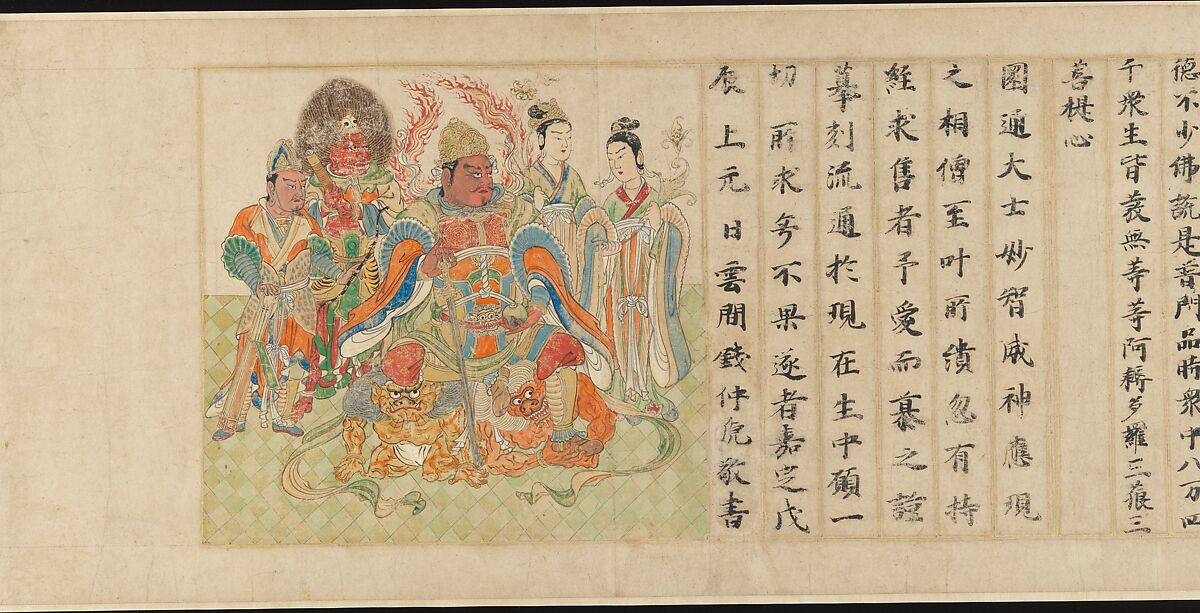 德不少佛說是普門品時衆中八万四
千衆生皆發無等等阿耨多羅三藐三
菩提心
圓通大士妙智威神應現
之相僧至叶所繢忽有持
經求售者予愛而慕之謹
摹刻流通扵現在生中願一
切所求无不果遂者嘉定戊
辰上元日雲間錢仲虎敬書